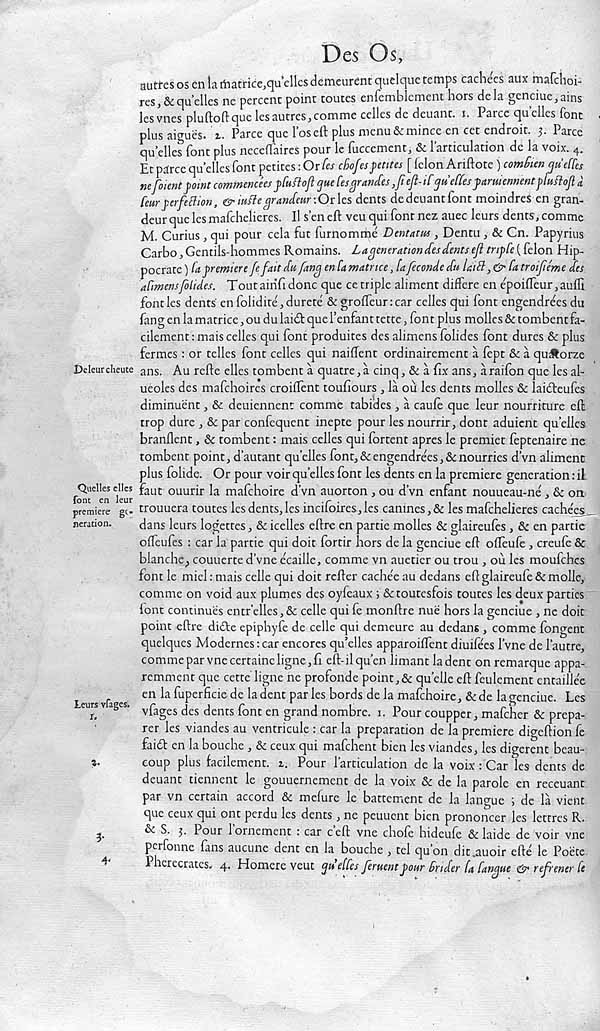 Des Os,
autres os en la matrice, qu'elles demeurent quelque temps cachées aux maſchoi-
res, & qu'elles ne percent point toutes enſemblement hors de la genciue, ains
les vnes pluſtoſt que les autres, comme celles de deuant. 1. Parce qu'elles ſont
plus aiguës. 2. Parce que l'os eſt plus menu & mince en cet endroit. 3. Parce
qu'elles ſont plus neceſſaires pour le ſuccement, & l'articulation de la voix. 4.
Et parce qu'elles ſont petites: Or les choſes petites [ ſelon Ariſtote ) combien qu'elles
ne ſoient point commencées pluſtoſt que les grandes, ſi eſt-il qu'elles paruiennent pluſtoſt à
leur perfection, & iuſte grandeur: Or les dents de deuant ſont moindres en gran-
deur que les maſchelieres. Il s'en eſt veu qui ſont nez auec leurs dents, comme
M. Curius, qui pour cela fut ſurnommé Dentatus, Dentu, & Cn. Papyrius
Carbo, Gentils-hommes Romains. La generation des dents eſt triple ( ſelon Hip-
pocrate ) la premiere ſe fait du ſang en la matrice, la ſeconde du laict, & la troiſiéme des
alimens ſolides. Tout ainſi donc que ce triple aliment differe en époiſſeur, auſſi
ſont les dents en ſolidité, dureté & groſſeur: car celles qui ſont engendrées du
ſang en la matrice, ou du laict que l'enfant tette, ſont plus molles & tombent fa-
cilement: mais celles qui ſont produites des alimens ſolides ſont dures & plus
fermes: or telles ſont celles qui naiſſent ordinairement à ſept & à quatorze
De leur cheute
ans. Au reſte elles tombent à quatre, à cinq, & à ſix ans, à raiſon que les al-
ueoles des maſchoires croiſſent touſiours, là où les dents molles & laicteuſes
diminuënt, & deuiennent comme tabides, à cauſe que leur nourriture eſt
trop dure, & par conſequent inepte pour les nourrir, dont aduient qu'elles
branſlent, & tombent: mais celles qui ſortent apres le premier ſeptenaire ne
tombent point, d'autant qu'elles ſont, & engendrées, & nourries d'vn aliment
plus ſolide. Or pour voir qu'elles ſont les dents en la premiere generation: il
Quelles elles
ſont en leur
premiere ge-
neration.
faut ouurir la maſchoire d'vn auorton, ou d'vn enfant nouueau-né, & on
trouuera toutes les dents, les inciſoires, les canines, & les maſchelieres cachées
dans leurs logettes, & icelles eſtre en partie molles & glaireuſes, & en partie
oſſeuſes: car la partie qui doit ſortir hors de la genciue eſt oſſeuſe, creuſe &
blanche, couuerte d'vne écaille, comme vn auetier ou trou, où les mouſches
font le miel: mais celle qui doit reſter cachée au dedans eſt glaireuſe & molle,
comme on void aux plumes des oyſeaux; & toutesfois toutes les deux parties
ſont continuës entr'elles, & celle qui ſe monſtre nuë hors la genciue, ne doit
point eſtre dicte epiphyſe de celle qui demeure au dedans, comme ſongent
quelques Modernes: car encores qu'elles apparoiſſent diuiſées l'vne de l'autre,
comme par vne certaine ligne, ſi eſt-il qu'en limant la dent on remarque appa-
remment que cette ligne ne profonde point, & qu'elle eſt ſeulement entaillée
en la ſuperficie de la dent par les bords de la maſchoire, & de la genciue. Les
Leurs vſages.
1.
vſages des dents ſont en grand nombre. 1. Pour coupper, maſcher & prepa-
rer les viandes au ventricule: car la preparation de la premiere digeſtion ſe
faict en la bouche, & ceux qui maſchent bien les viandes, les digerent beau-
2.
coup plus facilement. 2. Pour l'articulation de la voix: Car les dents de
deuant tiennent le gouuernement de la voix & de la parole en receuant
par vn certain accord & meſure le battement de la langue; de là vient
que ceux qui ont perdu les dents, ne peuuent bien prononcer les lettres R.
3.
& S. 3. Pour l'ornement: car c'eſt vne choſe hideuſe & laide de voir vne
perſonne ſans aucune dent en la bouche, tel qu'on dit auoir eſté le Poëte
4.
Pherecrates. 4. Homere veut qu'elles ſeruent pour brider la langue & refrener le